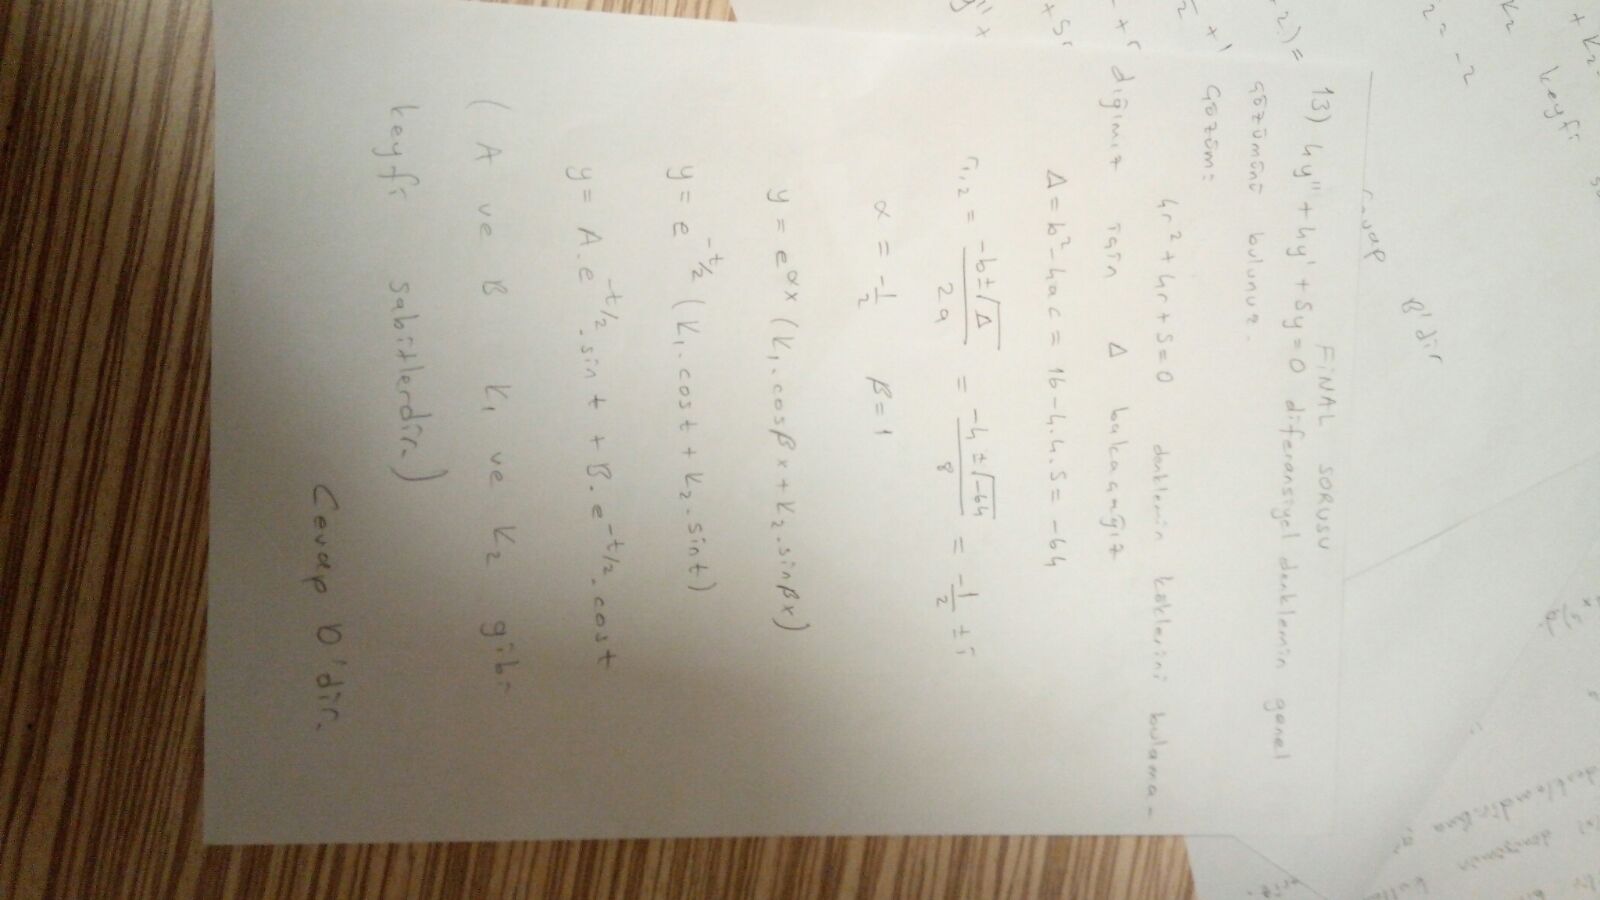 + K₂
keyfi
K₂
₂ = -2
B'dir
cevap
FİNAL SORUSU
13) 4y'' + 4y' + 5y = 0 diferansiyel denklemin genel
çözümünü bulunuz.
Çözüm:
4r² + 4r + 5 = 0 denklemin köklerini bulama-
dığımız için Δ bakacağız
Δ = b² - 4ac = 16 - 4.4.5 = -64
r₁,₂ = (-b ± √Δ)/2a = (-4 ± √-64)/8 = -1/2 ± i
α = -1/2 β = 1
y = e^αx (K₁.cosβx + K₂.sinβx)
y = e^-t/2 (K₁.cost + K₂.sint)
y = A.e^-t/2.sin t + B.e^-t/2.cost
( A ve B K₁ ve K₂ gibi
keyfi sabitlerdir.)
Cevap D'dir.